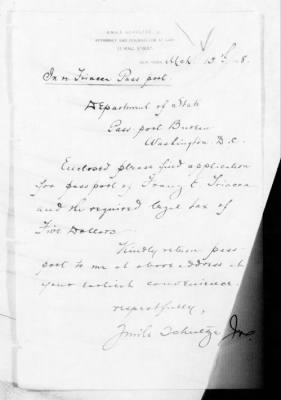 EMILE SCHULTZE, JR.
ATTORNEY AND COUNSELLOR AT LAW
WALL STREET
NEW YORK, Mch. 13th
In re Pass port.
Department of State
Pass-port Bureau
Washington D.C.
Enclosed please find application
for passport of Franz E.
and the required legal tax of
Five Dollars.
Kindly return pass-
port to me at above address at
your earliest convenience.
respectfully,
Emile Schultze Jr.